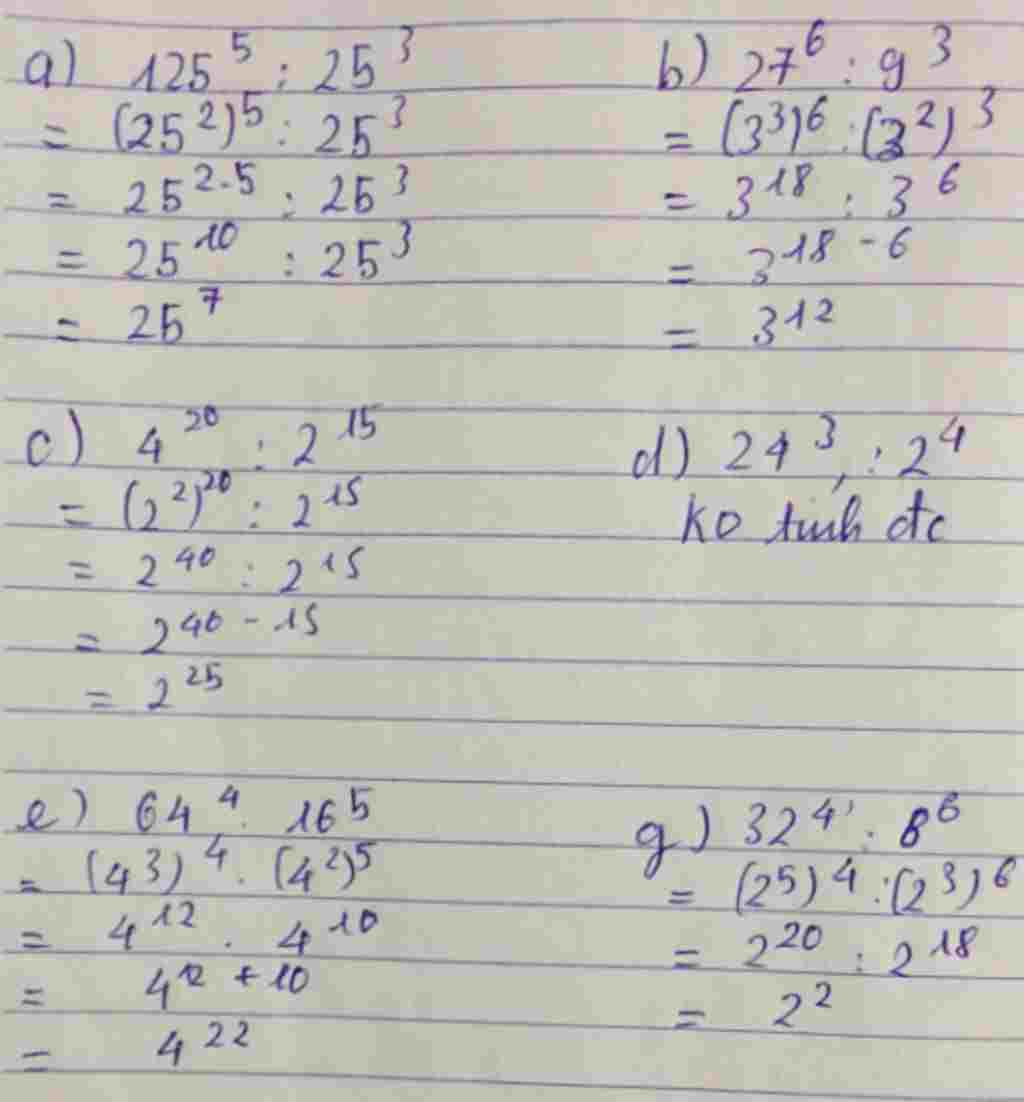 a) 125⁵ : 25³
= (25²)⁵ : 25³
= 25²·⁵ : 25³
= 25¹⁰ : 25³
= 25⁷
b) 27⁶ : 9³
= (3³)⁶ : (3²)³
= 3¹⁸ : 3⁶
= 3¹⁸ ⁻ ⁶
= 3¹²
c) 4²⁰ : 2¹⁵
= (2²)²⁰ : 2¹⁵
= 2⁴⁰ : 2¹⁵
= 2⁴⁰ ⁻ ¹⁵
= 2²⁵
d) 24³ : 2⁴
ko tính đc
e) 64⁴ . 16⁵
= (4³)⁴ . (4²)⁵
= 4¹² . 4¹⁰
= 4¹² ⁺ ¹⁰
= 4²²
g) 32⁴ : 8⁶
= (2⁵)⁴ : (2³)⁶
= 2²⁰ : 2¹⁸
= 2²